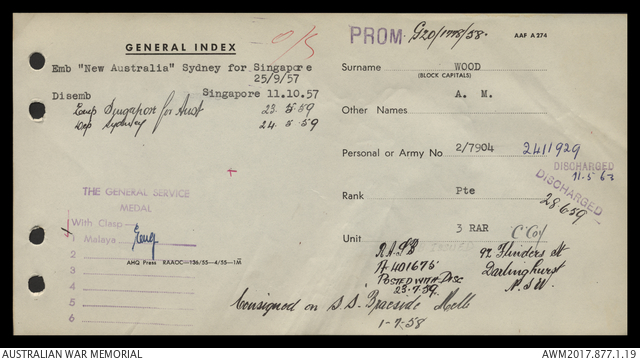 GENERAL INDEX
O/S
Emb "New Australia" Sydney for Singapore
25/9/57
Disemb Singapore 11.10.57
Emp Singapore for Aust 23.5.59
Dep Sydney 24.5.59
THE GENERAL SERVICE
MEDAL
With Clasp
1 Malaya
2
3
4
5
6
AHQ Press RAAOC—136/55—4/55—1M
PROM. G20/1778/58.
AAF A 274
Surname WOOD
(BLOCK CAPITALS)
A. M.
Other Names
Personal or Army No 2/7904 2411929
DISCHARGED
11.5.63
DISCHARGED
28.6.59
Rank Pte
Unit 3 RAR C Coy
A 401675
POSTED WITH DISC
23.7.59
92 Flinders St
Darlinghurst
N.S.W.
Consigned on S.S. Braeside Melb
1-7-58
AUSTRALIAN WAR MEMORIAL
AWM2017.877.1.19